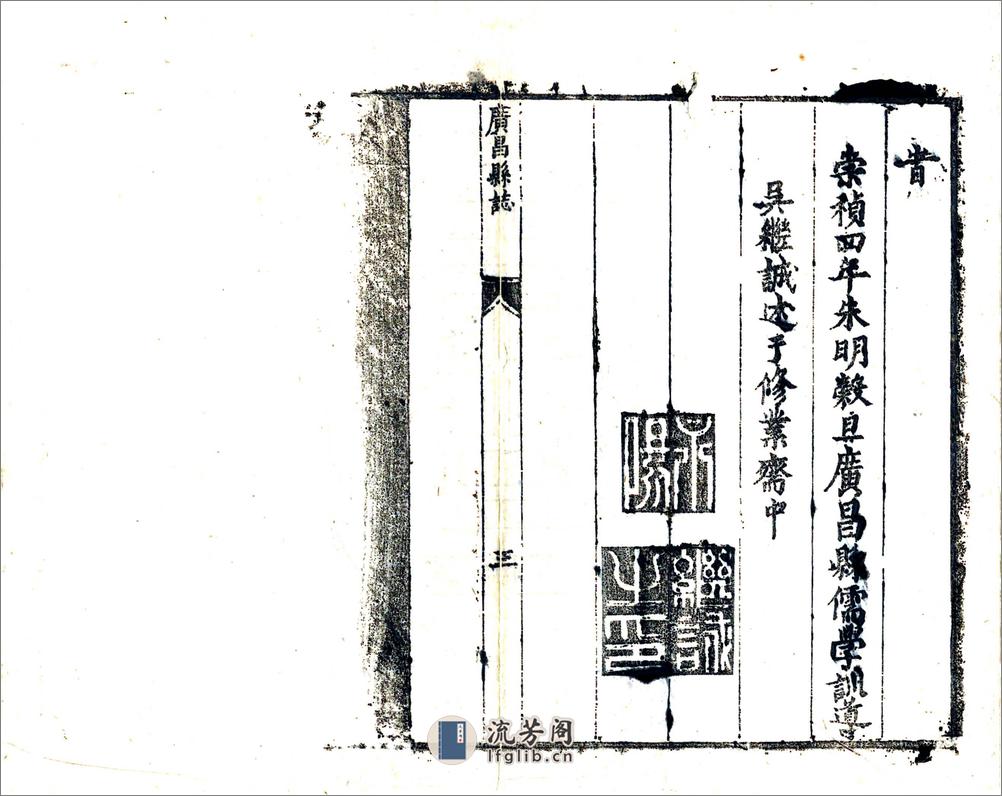 旹
崇禎四年朱明穀旦廣昌縣儒學訓導
吳繼誠述于修業齋中
繼誠之印
廣昌縣誌
三
流芳阁
lfglib.cn